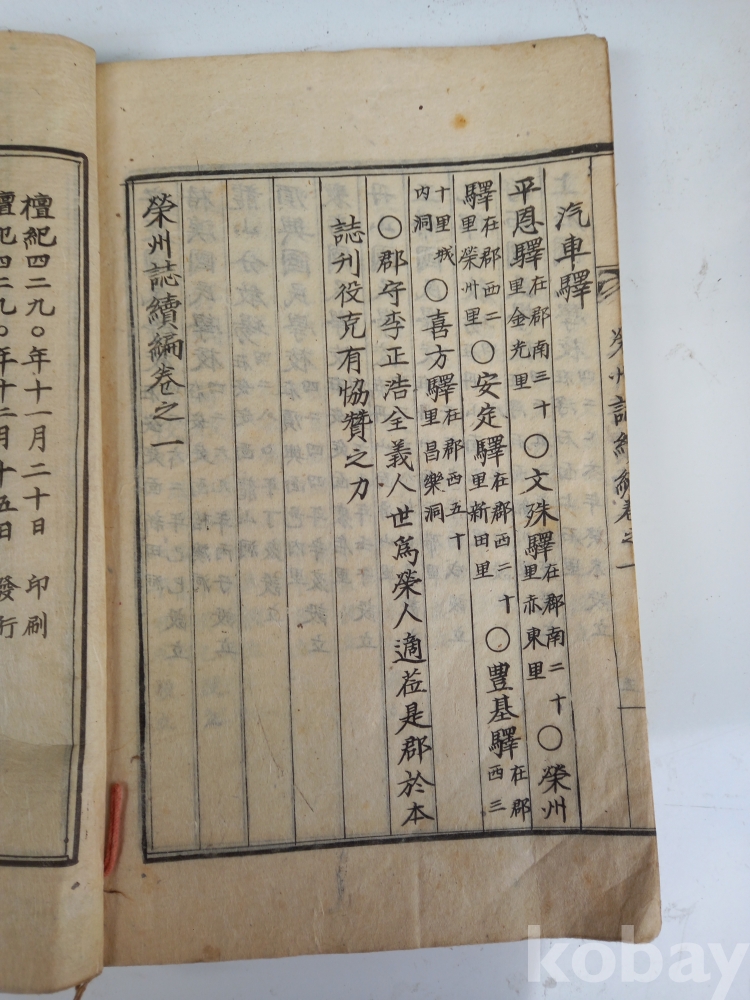 榮州誌續編卷之一
汽車驛
平恩驛在郡南三十里金光里○文殊驛在郡南二十里赤東里○榮州
驛在郡西二里榮州里○安定驛在郡西二十里新田里○豊基驛在郡西三
十里城內洞○喜方驛在郡西五十里昌樂洞
○郡守李正浩全義人世爲榮人適莅是郡於本
誌刊役克有協贊之力
榮州誌續編卷之一
檀紀四二九○年十一月二十日 印刷
檀紀四二九○年十二月十五日 發行
kobay